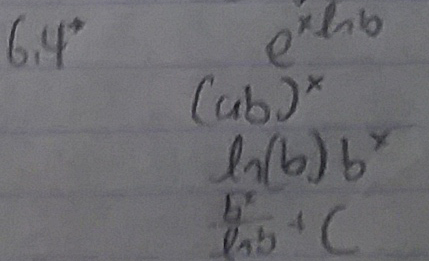 6.4* e^{x ln b}
(ab)^x
ln(b) b^x
b^x/ln b + C